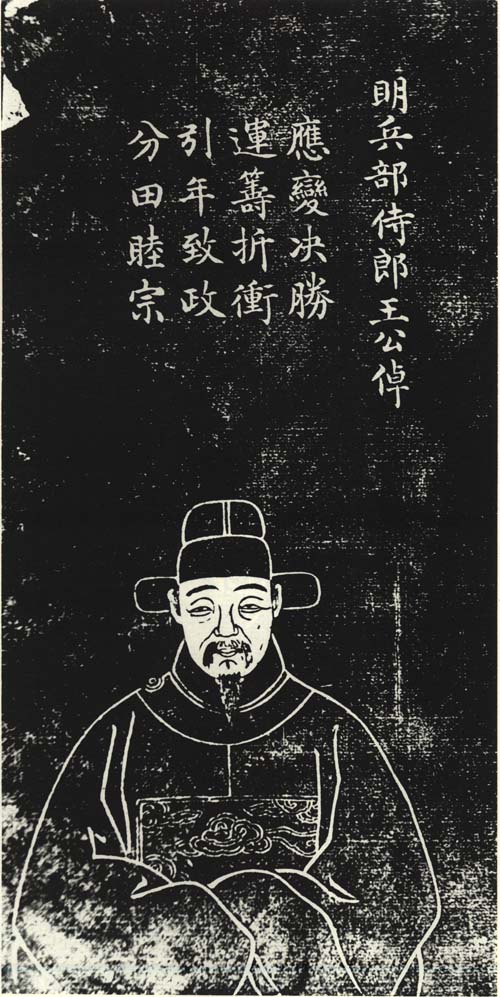 明兵部侍郎王公倬
應變决勝
運籌折衝
引年致政
分田睦宗